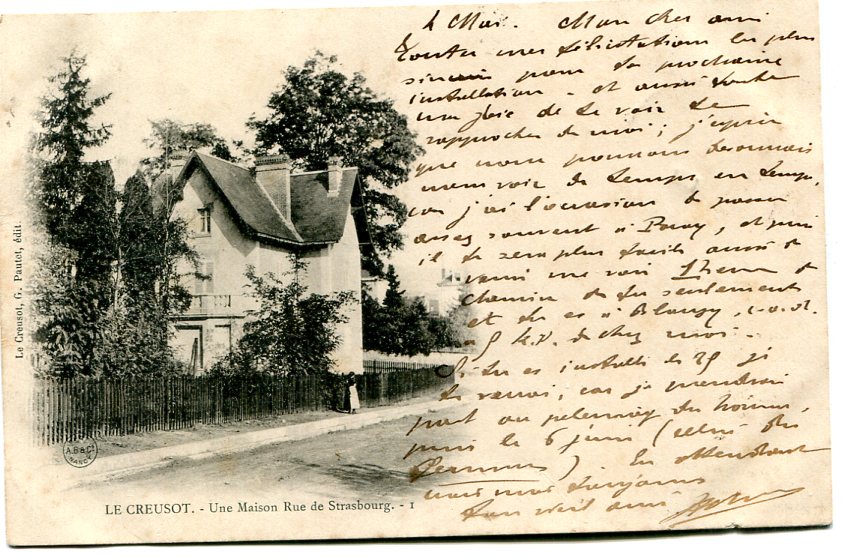 4 Mai. Mon cher ami
Toutes mes félicitations les plus
sincères pour ta prochaine
installation - et aussi toute
ma joie de te voir te
rapprocher de moi ; j'espère
que nous pourrons désormais
nous voir de temps en temps,
car j'ai l'occasion de passer
assez souvent à Paray, et puis
il te sera plus facile aussi de
venir me voir 1 heure de
chemin de fer seulement
et tu es à Blanzy, c.a.d.
à 5 k. de chez moi.
Si tu es installé le 25 j
te verrai, car je prendrai
part au pèlerinage des hommes,
puis le 6 juin (celui des
femmes). En attendant
ton vieil ami
Le Creusot, G. Pautet, édit
A.B & Cie
NANCY
LE CREUSOT. - Une Maison Rue de Strasbourg. - 1